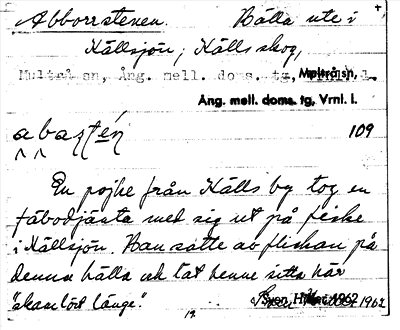 Abborrstenen. Hälla ute i
Källsjön, Källs skog,
Multrå sn, Ång. mell. doms. tg, Vrnl. l.
Multrå sn,
Ång. mell. doms. tg, Vrnl. l.
abastén 109
En pojke från Källs by tog en
fäbodjänta med sig ut på fiske
i Källsjön. Han satte av flickan på
denna hälla och lät henne sitta här
"skamlöst länge".
Sven H 1962
12